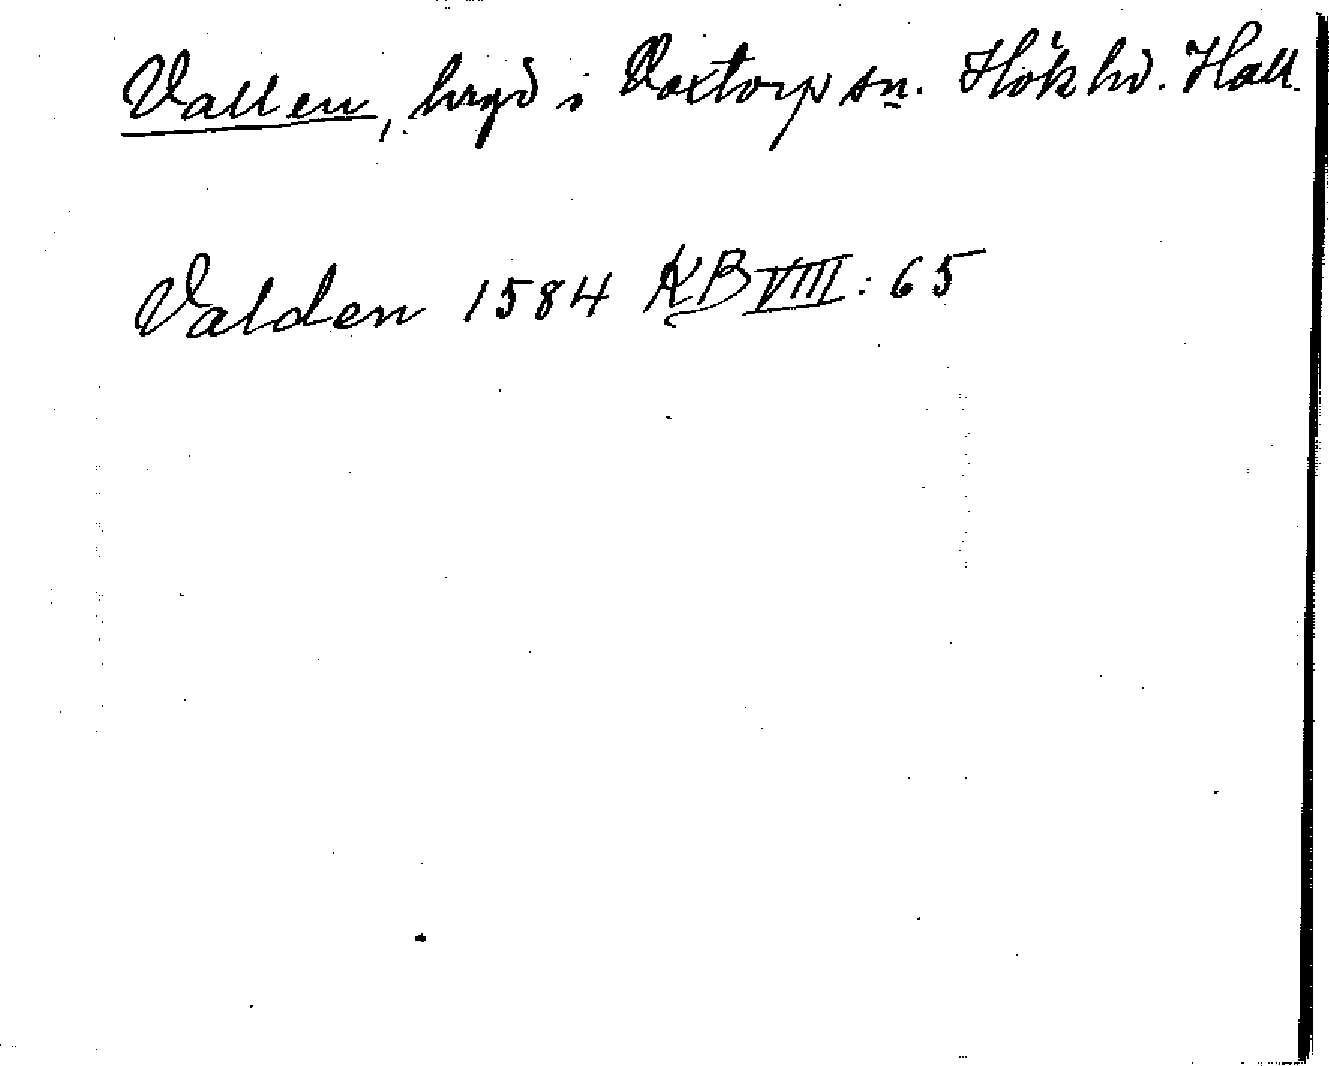 Vallen, hrgd i Voxtorp sn. Hök hd. Hall.
Valden 1584 KB VIII: 65